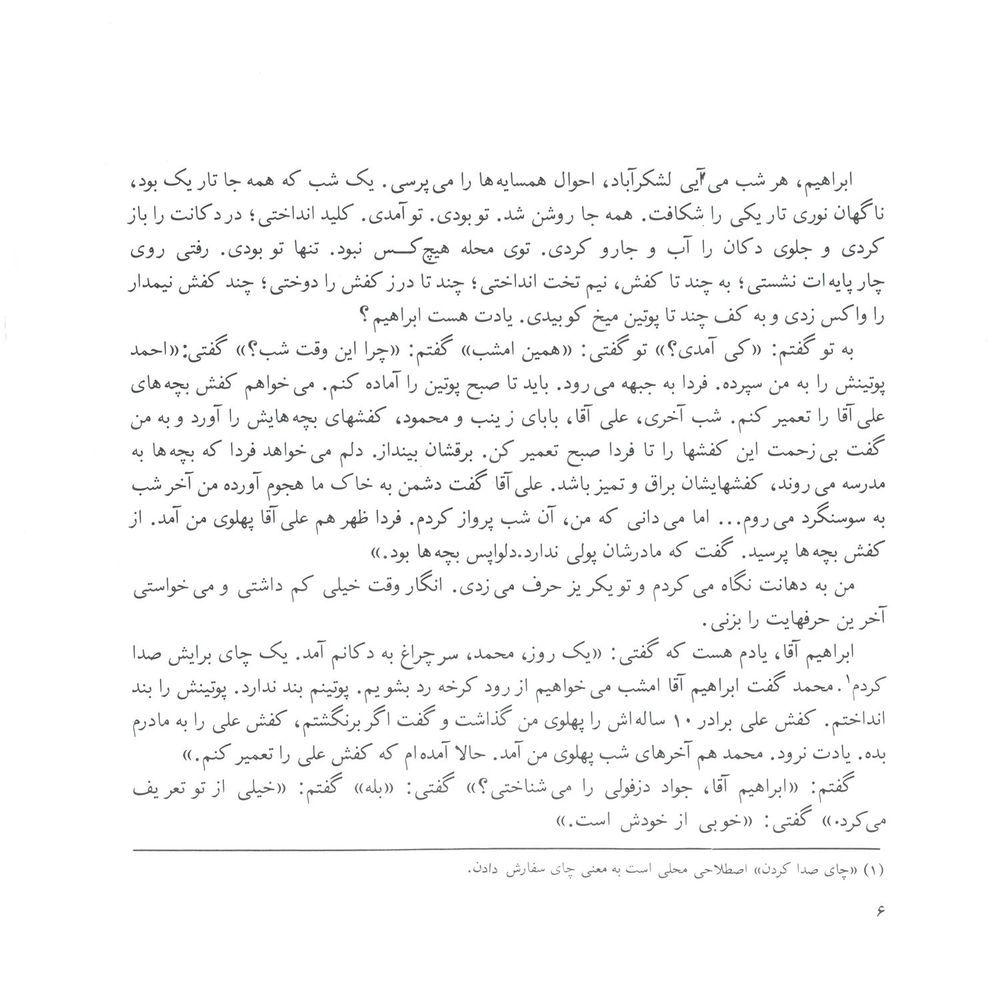 ابراهیم، هر شب می‌آیی لشکرآباد، احوال همسایه‌ها را می‌پرسی. یک شب که همه جا تاریک بود،
ناگهان نوری تاریکی را شکافت. همه جا روشن شد. تو بودی. تو آمدی. کلید انداختی؛ در دکانت را باز
کردی و جلوی دکان را آب و جارو کردی. توی محله هیچ‌کس نبود. تنها تو بودی. رفتی روی
چارپایه‌ات نشستی؛ به چند تا کفش، نیم تخت انداختی؛ چند تا درز کفش را دوختی؛ چند کفش نیمدار
را واکس زدی و به کف چند تا پوتین میخ کوبیدی. یادت هست ابراهیم؟
به تو گفتم: «کی آمدی؟» تو گفتی: «همین امشب» گفتم: «چرا این وقت شب؟» گفتی: «احمد
پوتینش را به من سپرده. فردا به جبهه می‌رود. باید تا صبح پوتین را آماده کنم. می‌خواهم کفش بچه‌های
علی آقا را تعمیر کنم. شب آخری، علی آقا، بابای زینب و محمود، کفشهای بچه‌هایش را آورد و به من
گفت بی‌زحمت این کفشها را تا فردا صبح تعمیر کن. برقشان بینداز. دلم می‌خواهد فردا که بچه‌ها به
مدرسه می‌روند، کفشهایشان براق و تمیز باشد. علی آقا گفت دشمن به خاک ما هجوم آورده من آخر شب
به سوسنگرد می‌روم... اما می‌دانی که من، آن شب پرواز کردم. فردا ظهر هم علی آقا پهلوی من آمد. از
کفش بچه‌ها پرسید. گفت که مادرشان پولی ندارد.دلواپس بچه‌ها بود.»
من به دهانت نگاه می‌کردم و تو یکریز حرف می‌زدی. انگار وقت خیلی کم داشتی و می‌خواستی
آخرین حرفهایت را بزنی.
ابراهیم آقا، یادم هست که گفتی: «یک روز، محمد، سر چراغ به دکانم آمد. یک چای برایش صدا
کردم۱. محمد گفت ابراهیم آقا امشب می‌خواهیم از رود کرخه رد بشویم. پوتینم بند ندارد. پوتینش را بند
انداختم. کفش علی برادر ۱۰ ساله‌اش را پهلوی من گذاشت و گفت اگر برنگشتم، کفش علی را به مادرم
بده. یادت نرود. محمد هم آخرهای شب پهلوی من آمد. حالا آمده‌ام که کفش علی را تعمیر کنم.»
گفتم: «ابراهیم آقا، جواد دزفولی را می‌شناختی؟» گفتی: «بله» گفتم: «خیلی از تو تعریف
می‌کرد.» گفتی: «خوبی از خودش است.»
(۱) «چای صدا کردن» اصطلاحی محلی است به معنی چای سفارش دادن.
۶